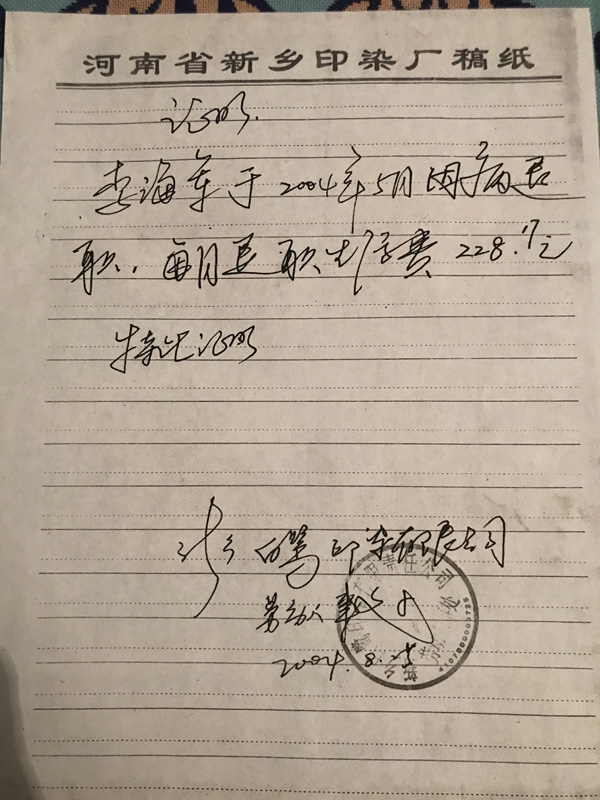 河南省新乡印染厂稿纸
证明.
李海军于2004年5月因病退
职，每月退职生活费228.17元
特此证明
印染有限公司
2004.8.25